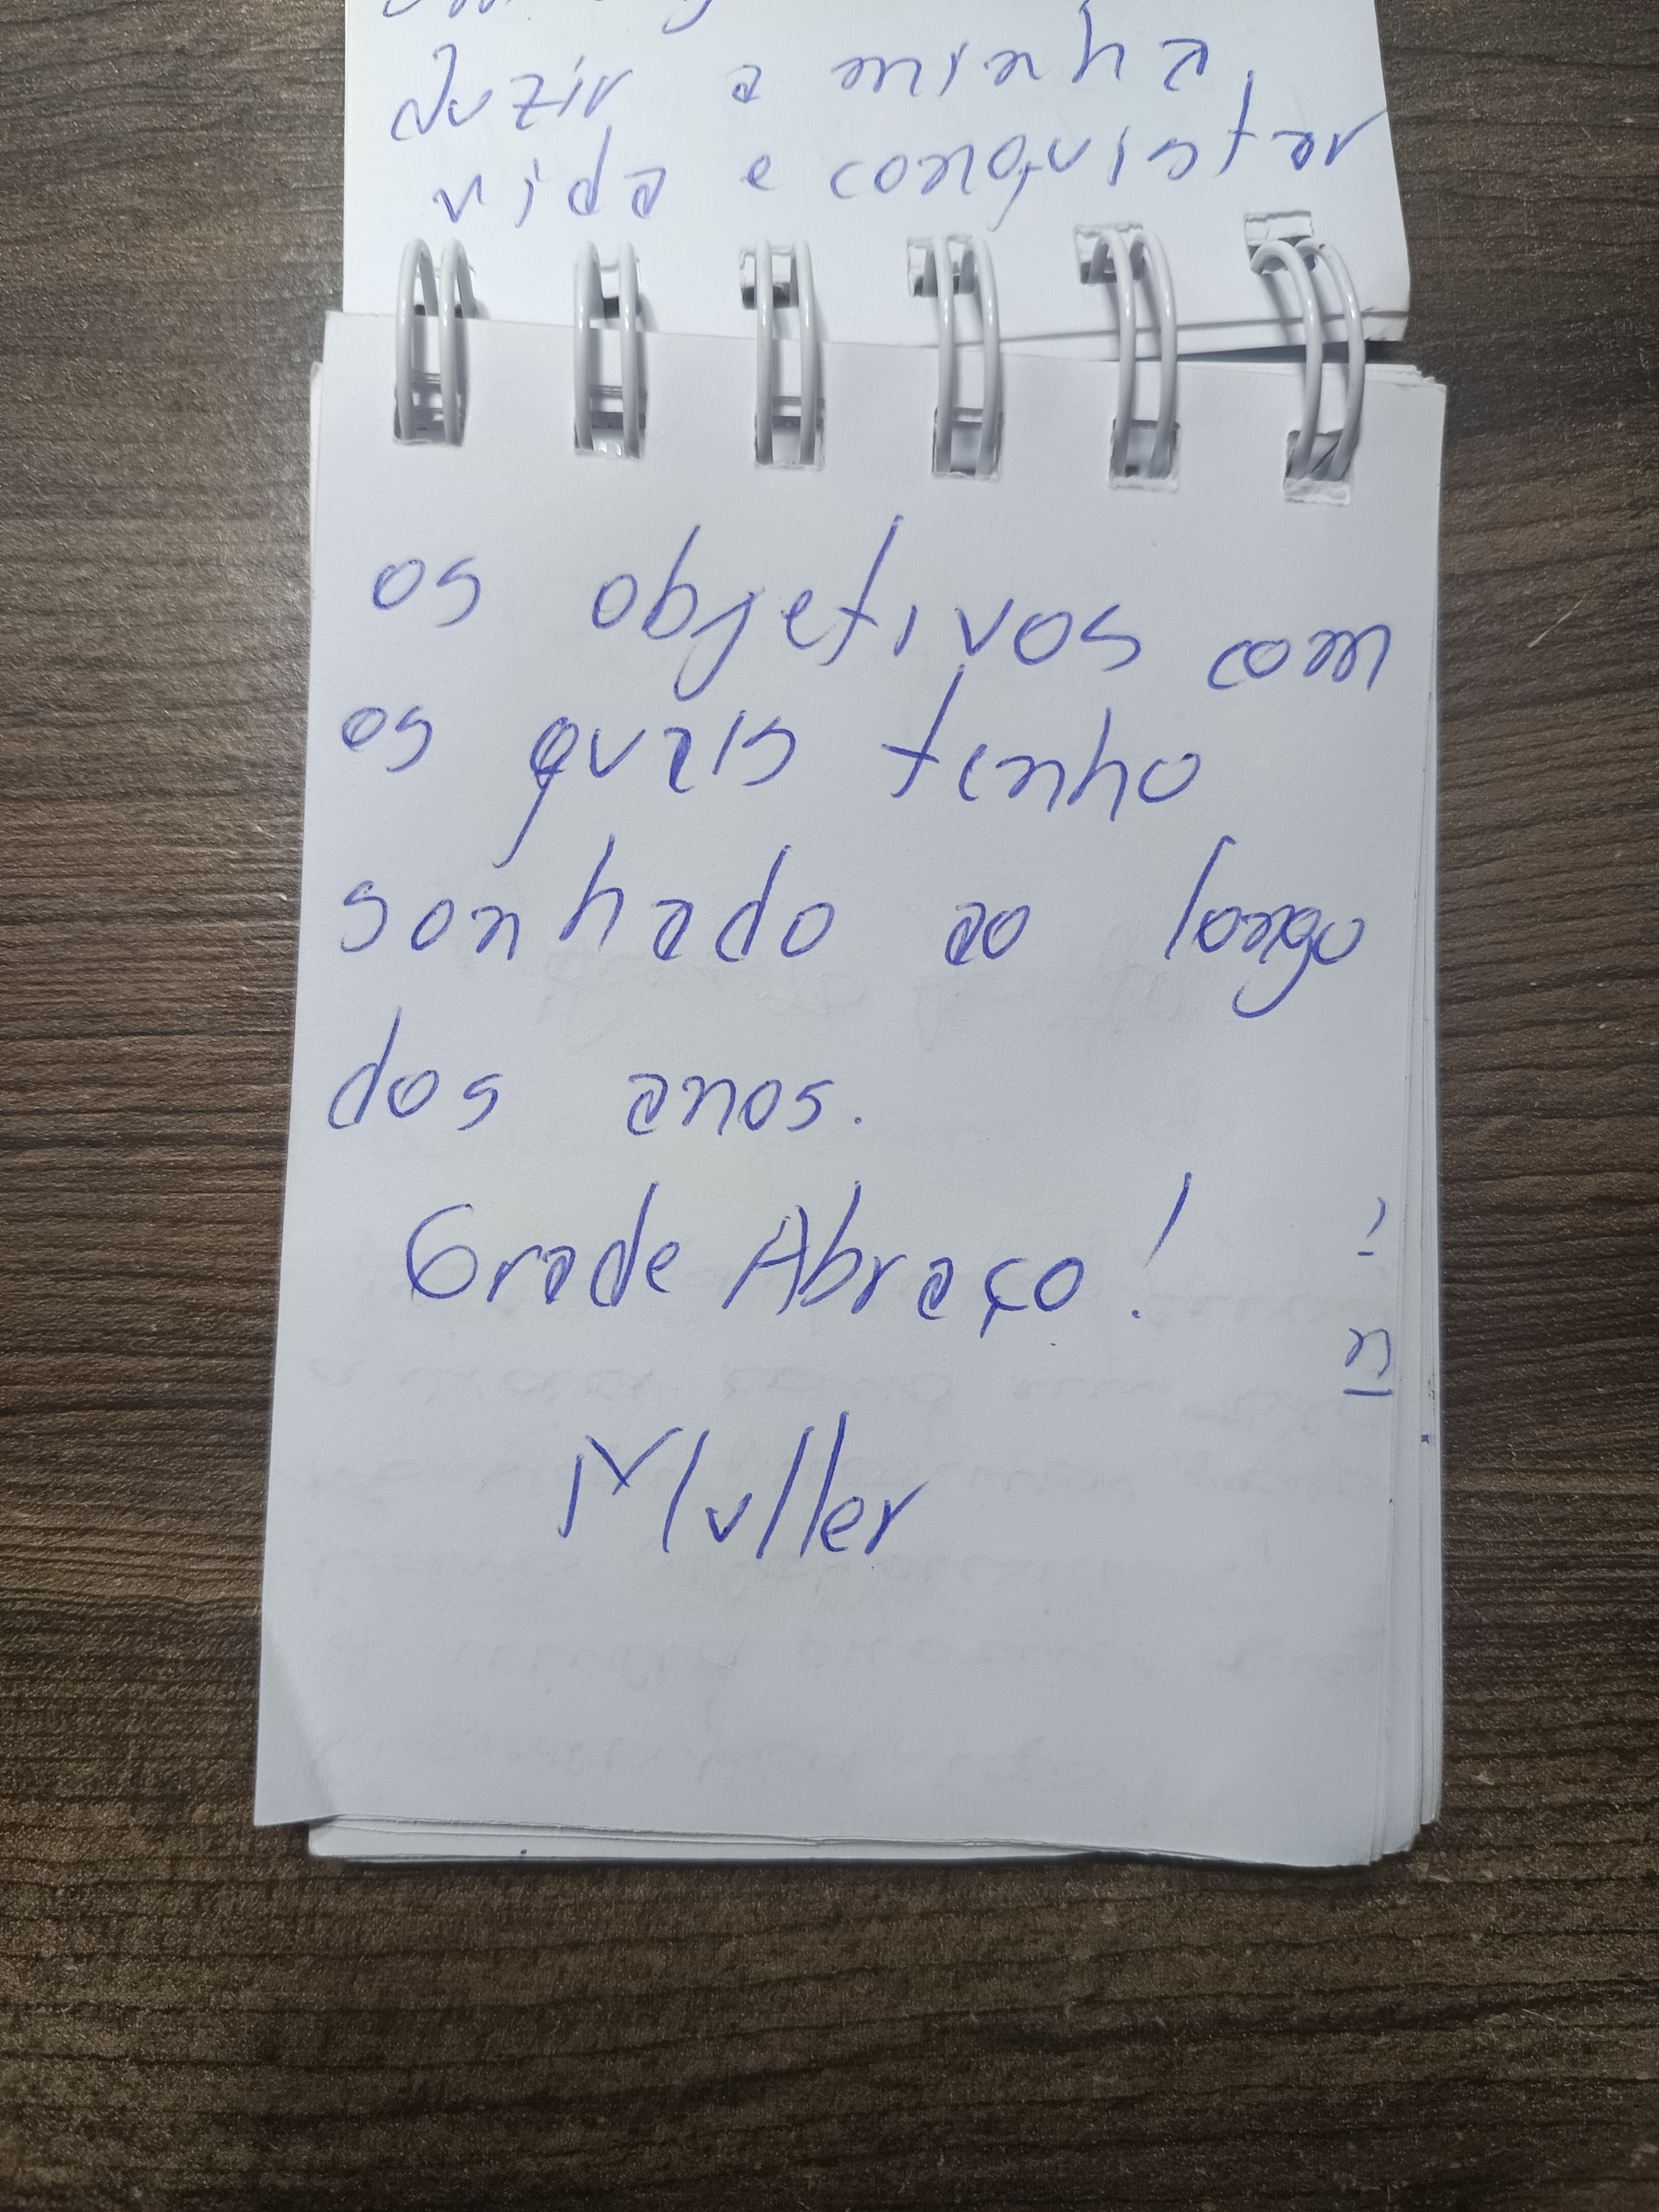 duzir a minha
vida e conquistar
os objetivos com
os quais tenho
sonhado ao longo
dos anos.
Grade Abraço!
n
Muller